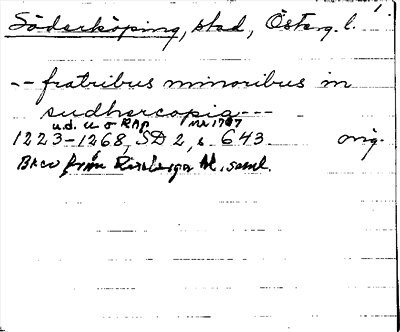 1.
Söderköping, stad, Österg. l.
-- fratribus minoribus in
sudhercopia ---
u.d. u o RAp nr 1707
1223-1268, SD 2, s. 643 orig.
Brev från M. saml.